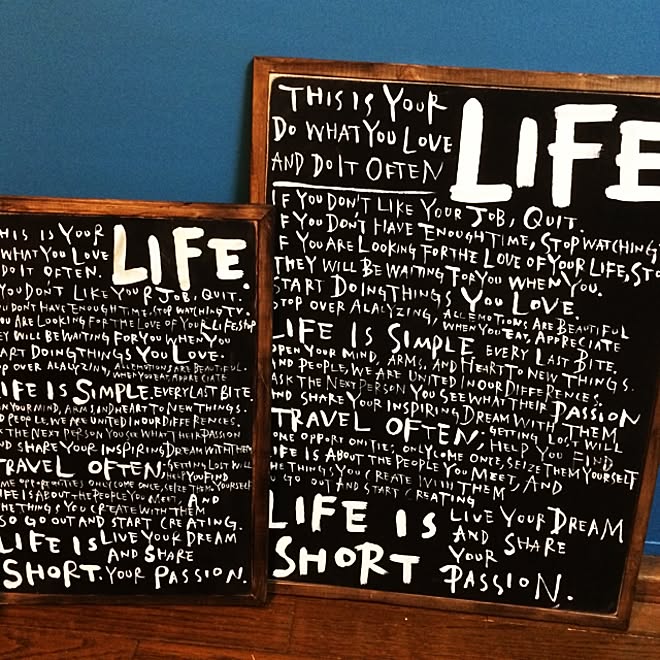 THIS IS YOUR
LIFE.
WHAT YOU LOVE
DO IT OFTEN.
YOU DON'T LIKE YOUR JOB, QUIT.
DON'T HAVE ENOUGH TIME, STOP WATCHING TV.
YOU ARE LOOKING FOR THE LOVE OF YOUR LIFE, STOP
WILL BE WAITING FOR YOU WHEN YOU
START DOING THINGS YOU LOVE.
OVER ALALYZING, ALL EMOTIONS ARE BEAUTIFUL.
WHEN YOU EAT, APPRECIATE
LIFE IS SIMPLE. EVERY LAST BITE,
YOUR MIND, ARMS AND HEART TO NEW THINGS.
PEOPLE, WE ARE UNITED IN OUR DIFFERENCES.
THE NEXT PERSON YOU SEE WHAT THEIR PASSION
AND SHARE YOUR INSPIRING DREAM WITH THEM
TRAVEL OFTEN; GETTING LOST WILL
HELP YOU FIND
OPPORTUNITIES ONLY COME ONCE, SEIZE THEM YOURSELF
LIFE IS ABOUT THE PEOPLE YOU MEET, AND
THE THINGS YOU CREATE WITH THEM
SO GO OUT AND START CREATING.
LIFE IS LIVE YOUR DREAM
AND SHARE
SHORT. YOUR PASSION.
THIS IS YOUR
LIFE
DO WHAT YOU LOVE
AND DO IT OFTEN
IF YOU DON'T LIKE YOUR JOB, QUIT.
IF YOU DON'T HAVE ENOUGH TIME, STOP WATCHING
IF YOU ARE LOOKING FOR THE LOVE OF YOUR LIFE, STO
THEY WILL BE WAITING FOR YOU WHEN YOU.
START DOING THINGS YOU LOVE.
STOP OVER ALALYZING, ALL EMOTIONS ARE BEAUTIFUL
WHEN YOU EAT, APPRECIATE
LIFE IS SIMPLE EVERY LAST BITE.
OPEN YOUR MIND, ARMS, AND HEART TO NEW THINGS.
AND PEOPLE, WE ARE UNITED IN OUR DIFFERENCES.
ASK THE NEXT PERSON YOU SEE WHAT THEIR PASSION
AND SHARE YOUR INSPIRING DREAM WITH THEM
TRAVEL OFTEN; GETTING LOST WILL
HELP YOU FIND
OPPORTUNITIES; ONLY COME ONCE, SEIZE THEM YOURSELF
LIFE IS ABOUT THE PEOPLE YOU MEET, AND
THE THINGS YOU CREATE THEM
GO OUT AND START CREATING
LIFE IS LIVE YOUR DREAM
AND SHARE
SHORT YOUR
PASSION.